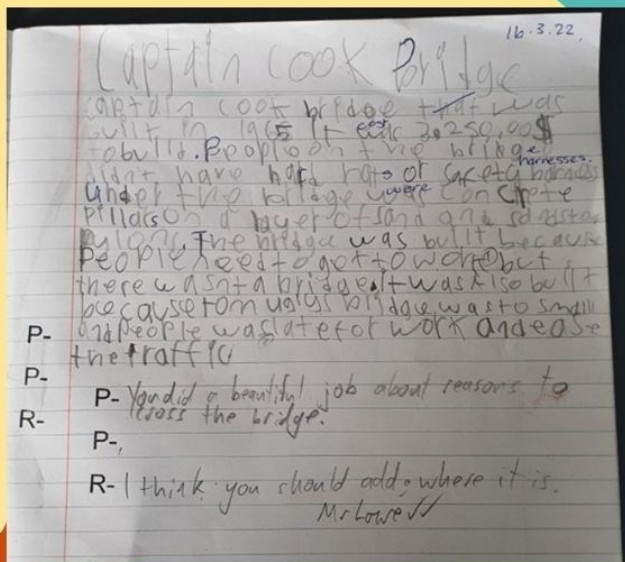 16.3.22.
Captain cook Bridge
captain cook bridge that was
built in 1965 It cost was 3.250,00$
tobuild. People on the bridge
didn't have hard hats or safety harnesses.
under the bridge were concrete
Pillars on a layer of sand and
pylons. The bridge was built because
People need to get to work but
there wasnt a bridge. It was Also built
because tom uglys bridge was to small
P- and people was late for work and ease
the traffic
P-
P- You did a beautiful job about reasons to
cross the bridge.
R-
P-,
R- I think you should add where it is.
Mr Lowe